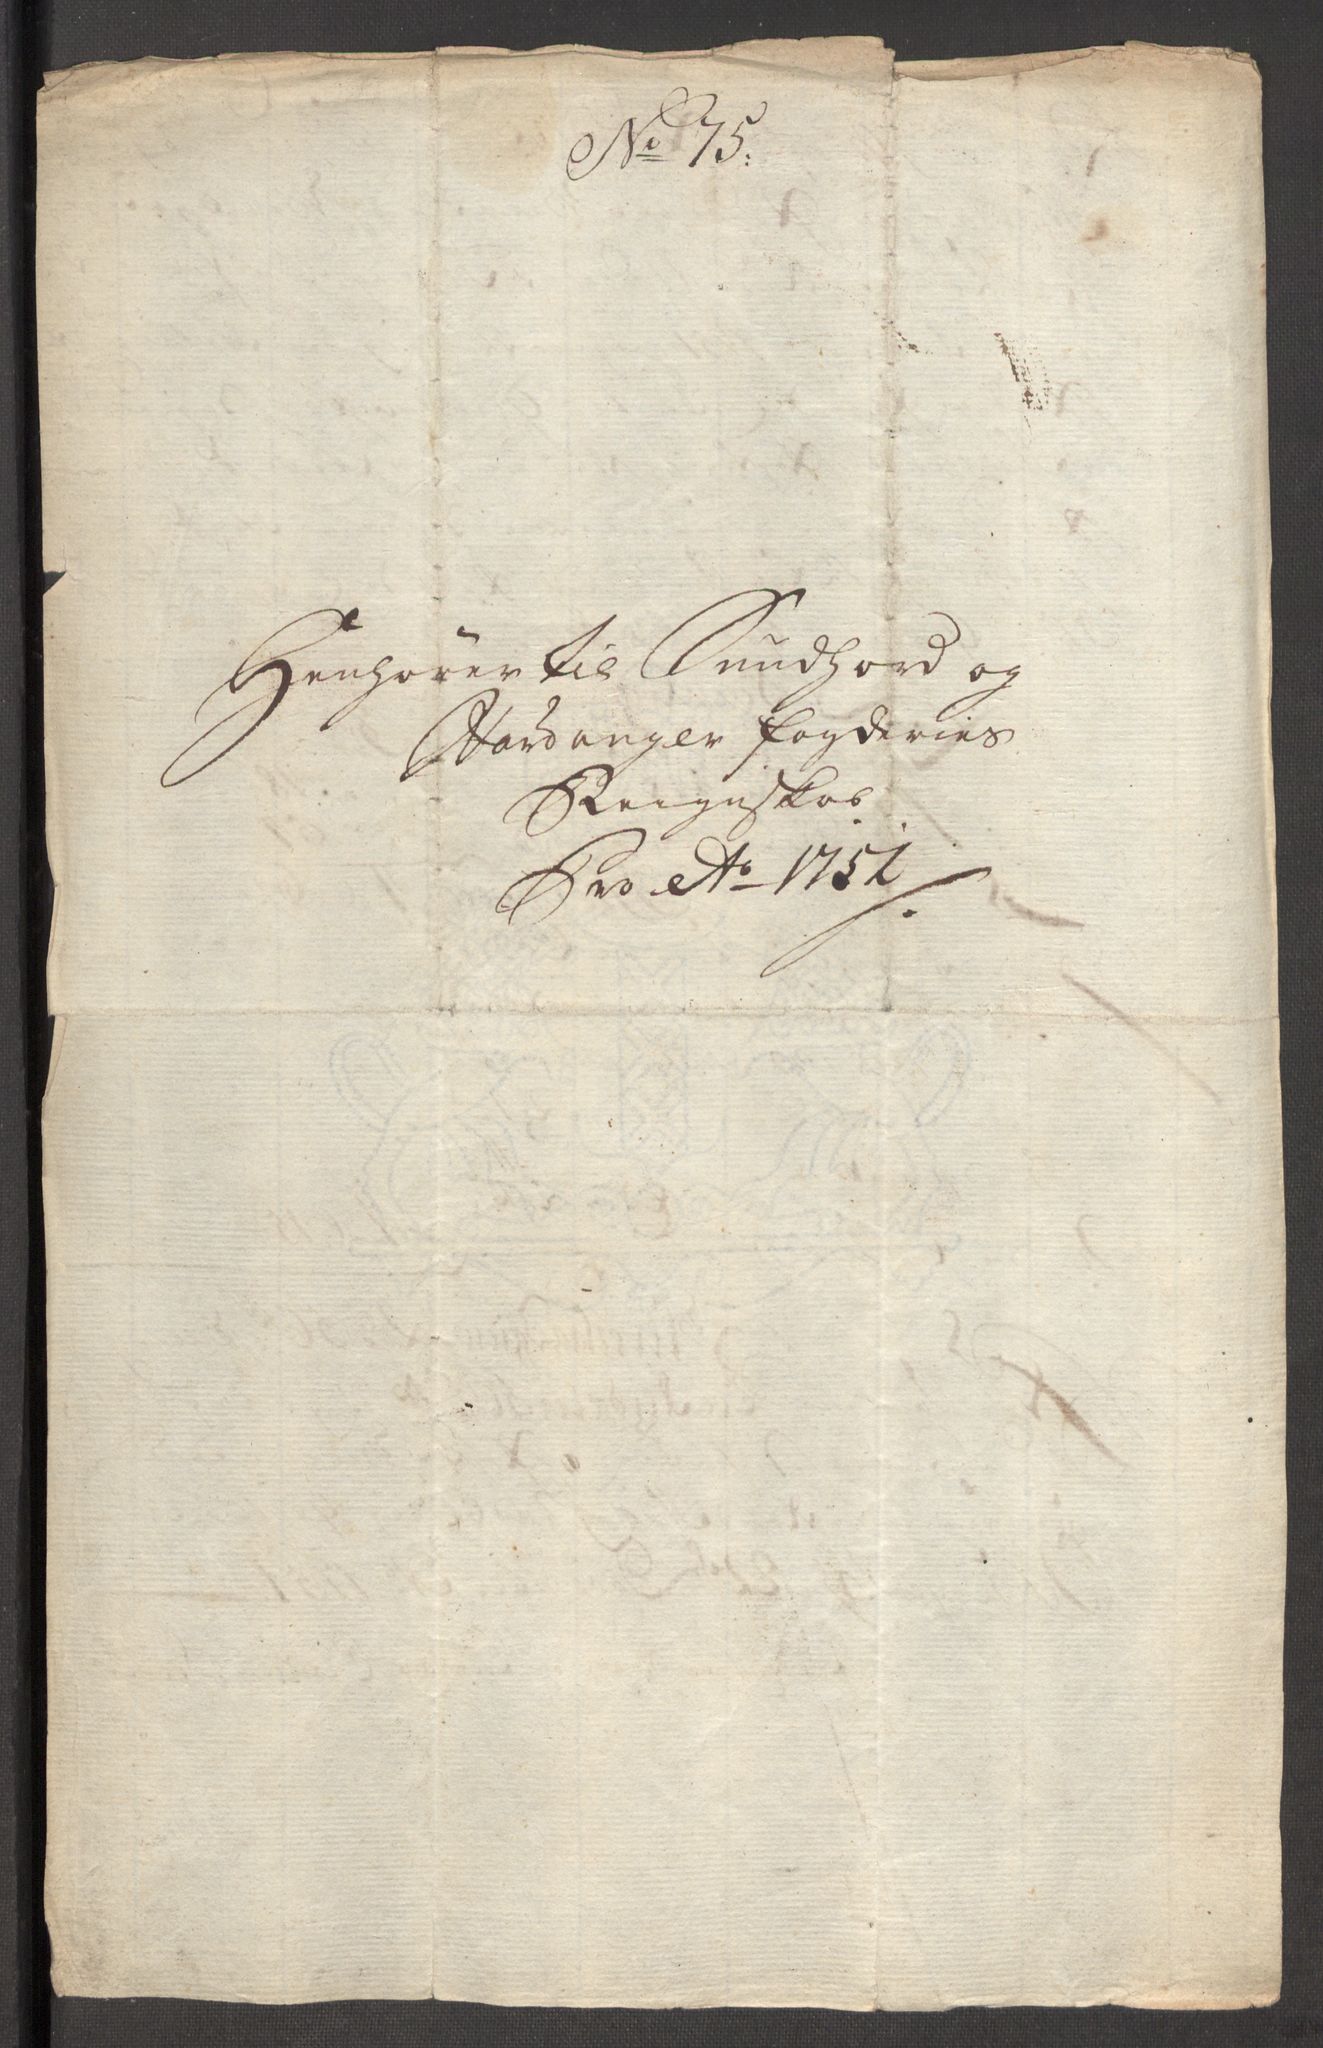 No 75.
Henhører til Sundhord og
Hardanger fogderies
Reignskab
Pro Ao 1751